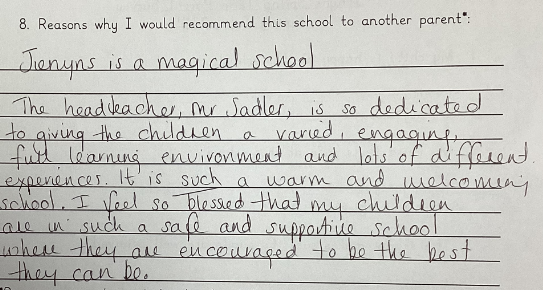 8. Reasons why I would recommend this school to another parent*:
Jienyns is a magical school
The headteacher, Mr Sadler, is so dedicated
to giving the children a varied, engaging,
full learning environment and lots of different
experiences. It is such a warm and welcoming
school. I feel so blessed that my children
are in such a safe and supportive school
where they are encouraged to be the best
they can be.